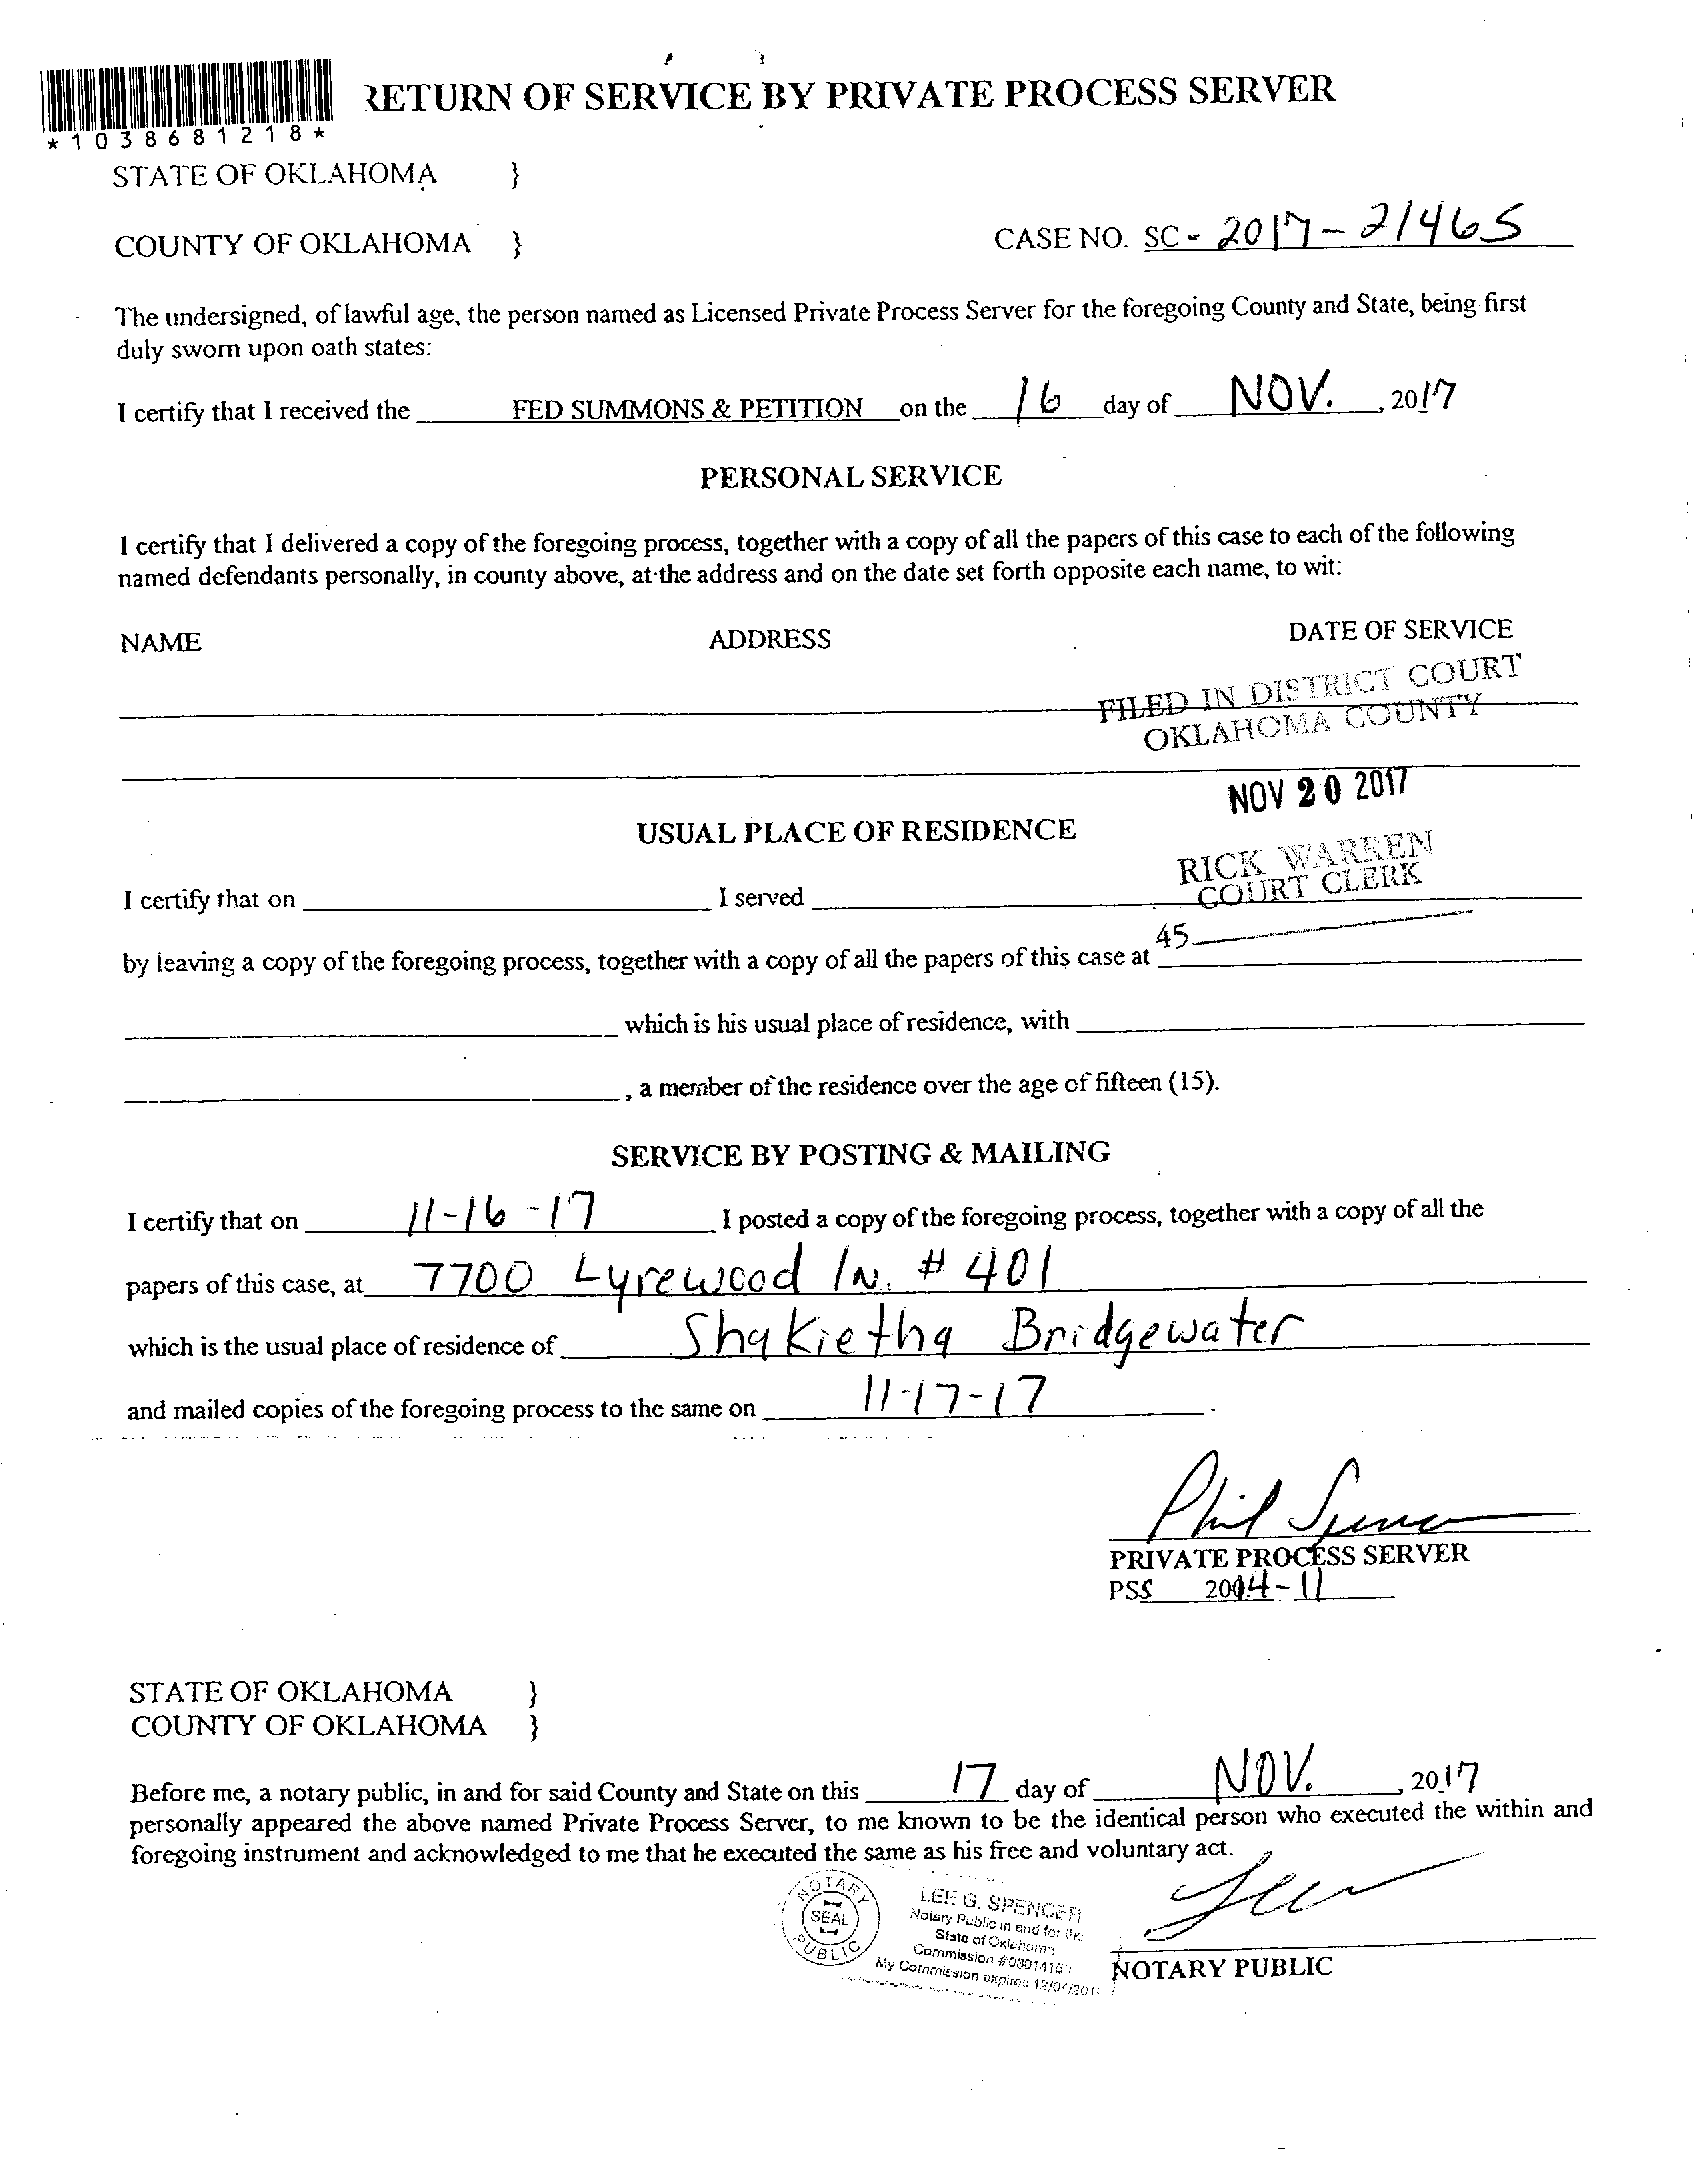 RETURN OF SERVICE BY PRIVATE PROCESS SERVER
*1038681218*
STATE OF OKLAHOMA }
COUNTY OF OKLAHOMA } CASE NO. SC - 2017-21465
The undersigned, of lawful age, the person named as Licensed Private Process Server for the foregoing County and State, being first
duly sworn upon oath states:
I certify that I received the FED SUMMONS & PETITION on the 16 day of NOV. , 2017
PERSONAL SERVICE
I certify that I delivered a copy of the foregoing process, together with a copy of all the papers of this case to each of the following
named defendants personally, in county above, at the address and on the date set forth opposite each name, to wit:
NAME ADDRESS DATE OF SERVICE
FILED IN DISTRICT COURT
OKLAHOMA COUNTY
NOV 20 2017
USUAL PLACE OF RESIDENCE
RICK WARREN
COURT CLERK
I certify that on I served
45
by leaving a copy of the foregoing process, together with a copy of all the papers of this case at
which is his usual place of residence, with
, a member of the residence over the age of fifteen (15).
SERVICE BY POSTING & MAILING
I certify that on 11-16-17 I posted a copy of the foregoing process, together with a copy of all the
papers of this case, at 7700 Lyrewood ln. # 401
which is the usual place of residence of Shakietha Bridgewater
and mailed copies of the foregoing process to the same on 11-17-17 .
Phil Spencer
PRIVATE PROCESS SERVER
PSS 2014-11
STATE OF OKLAHOMA }
COUNTY OF OKLAHOMA }
Before me, a notary public, in and for said County and State on this 17 day of NOV. , 2017
personally appeared the above named Private Process Server, to me known to be the identical person who executed the within and
foregoing instrument and acknowledged to me that he executed the same as his free and voluntary act.
NOTARY
SEAL
PUBLIC
LEE G. SPENCER
Notary Public in and for the
State of Oklahoma
Commission
My Commission expires
NOTARY PUBLIC